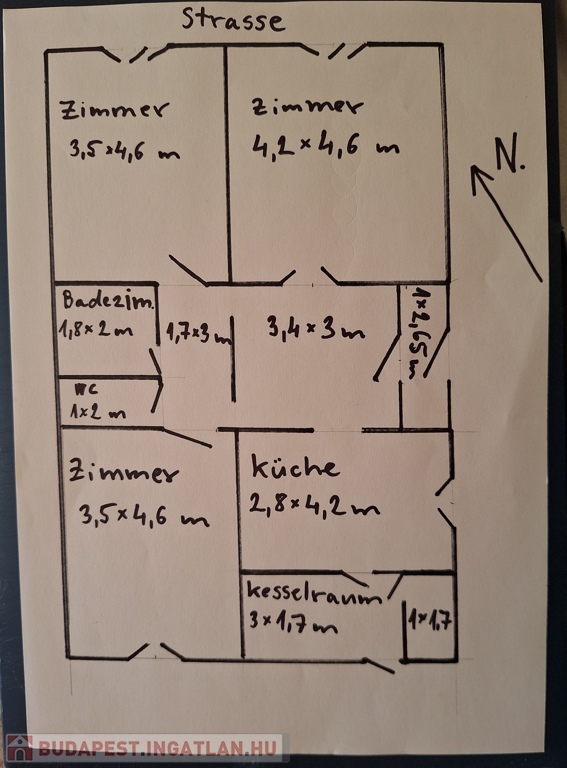 Strasse
Zimmer
3,5×4,6 m
Zimmer
4,2×4,6 m
N.
Badezim.
1,8×2 m
1,7×3m
3,4×3m
1×2,65 m
WC
1×2 m
Zimmer
3,5×4,6 m
Küche
2,8×4,2m
Kesselraum
3×1,7m
1×1.7
BUDAPEST.INGATLAN.HU